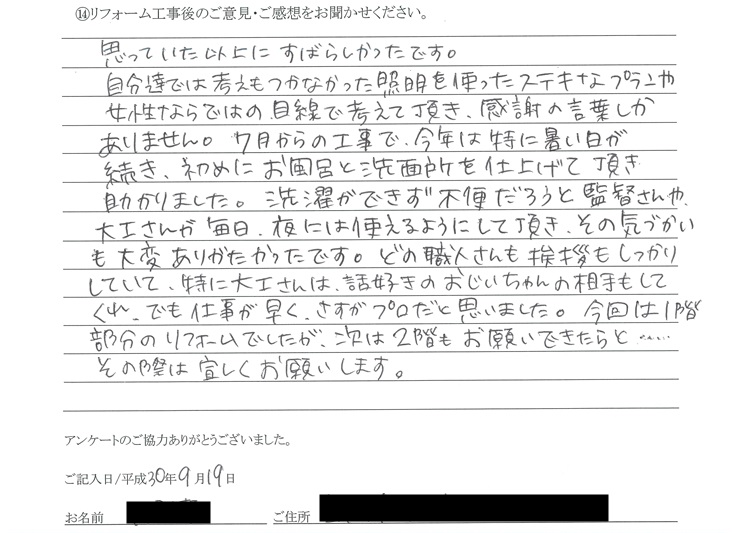 ⑭リフォーム工事後のご意見・ご感想をお聞かせください。
思っていた以上に すばらしかったです。
自分達では考えもつかなかった照明を使ったステキなプランや
女性ならではの目線で考えて頂き、感謝の言葉しか
ありません。7月からの工事で、今年は特に暑い日が
続き、初めにお風呂と洗面所を仕上げて頂き
助かりました。洗濯ができず不便だろうと監督さんや、
大工さんが毎日、夜には使えるようにして頂き、その気づかい
も大変ありがたかったです。どの職人さんも挨拶もしっかり
していて、特に大工さんは、話好きのおじいちゃんの相手もして
くれ、でも仕事が早く、さすがプロだと思いました。今回は1階
部分のリフォームでしたが、次は2階もお願いできたらと……
その際は宜しくお願いします。
アンケートのご協力ありがとうございました。
ご記入日/平成30年9月19日
お名前 ご住所